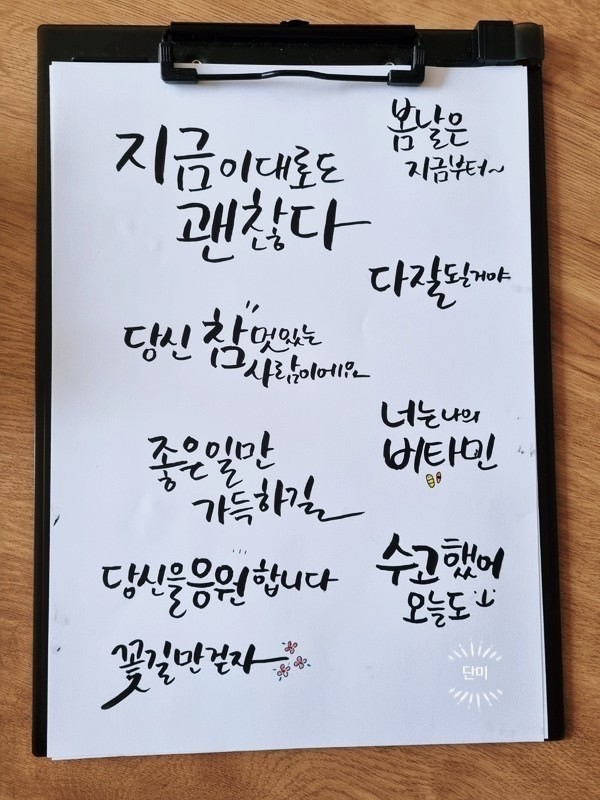 지금 이대로도
괜찮다
봄날은
지금부터~
다 잘 될거야
당신 참 멋있는
사람이에요
너는 나의
비타민
좋은 일만
가득하길
당신을 응원합니다
수고했어
오늘도
꽃길만 걷자
단미